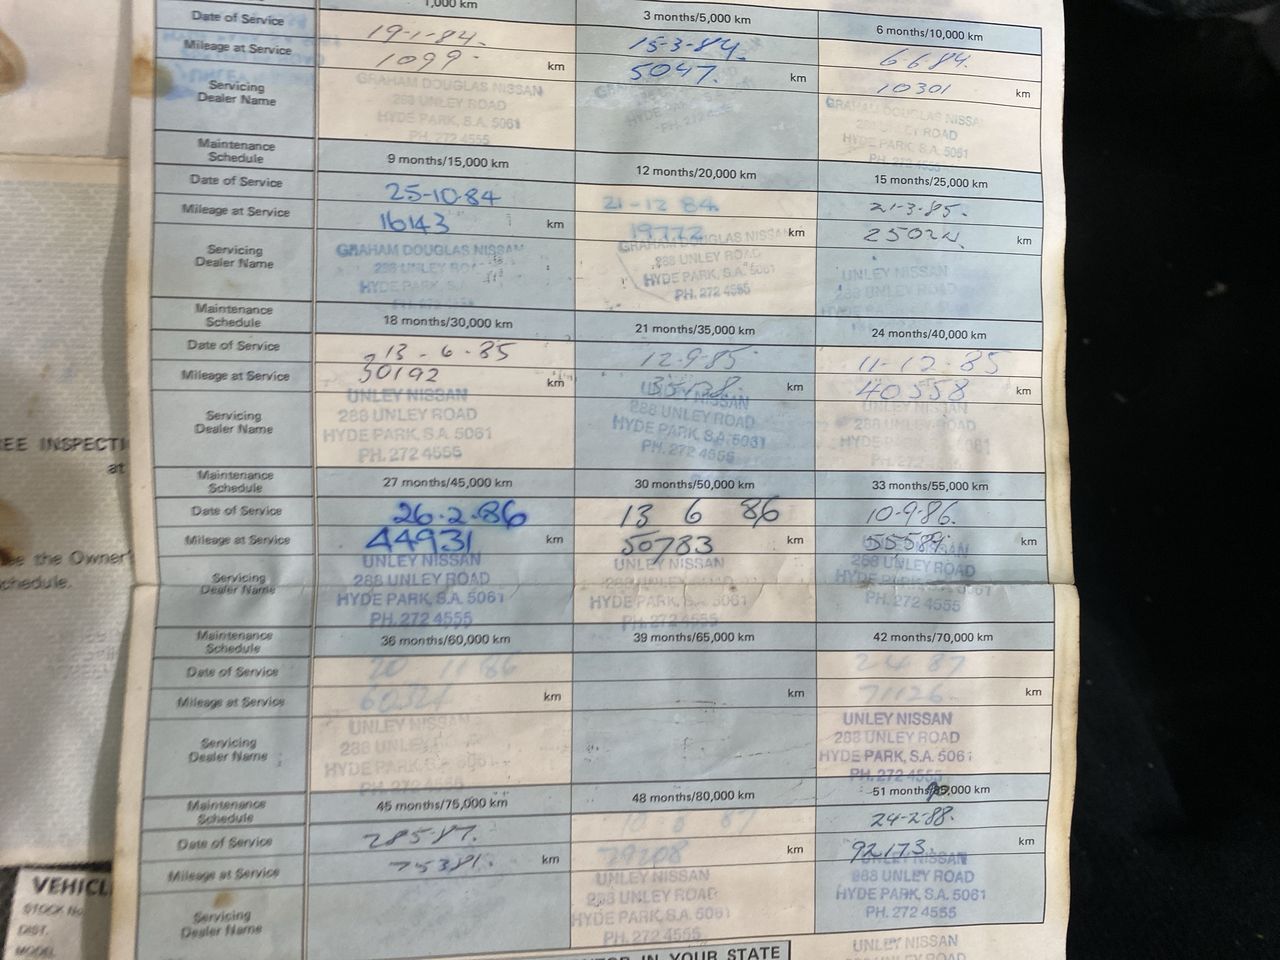 1,000 km 3 months/5,000 km 6 months/10,000 km
Date of Service 19-1-84. 15-3-84. 6 6 84.
Mileage at Service 1099 km 5047. km 10301 km
Servicing Dealer Name
GRAHAM DOUGLAS NISSAN
288 UNLEY ROAD
HYDE PARK, S.A. 5061
PH. 272 4555
GRAHAM DOUGLAS NISSAN
288 UNLEY ROAD
HYDE PARK, S.A. 5061
PH. 272 4555
Maintenance Schedule 9 months/15,000 km 12 months/20,000 km 15 months/25,000 km
Date of Service 25-10-84 21-12 84. 21-3-85.
Mileage at Service 16143 km 19772 km km
Servicing Dealer Name
GRAHAM DOUGLAS NISSAN
288 UNLEY
HYDE PARK, S.A
GRAHAM DOUGLAS NISSAN
288 UNLEY ROAD
HYDE PARK, S.A. 5061
PH. 272 4555
UNLEY NISSAN
288 UNLEY ROAD
HYDE PARK
Maintenance Schedule 18 months/30,000 km 21 months/35,000 km 24 months/40,000 km
Date of Service 13-6-85 12-9-85 11-12-85
Mileage at Service 30192 km km 40558 km
Servicing Dealer Name
UNLEY NISSAN
288 UNLEY ROAD
HYDE PARK, S.A. 5061
PH. 272 4555
UNLEY NISSAN
288 UNLEY ROAD
HYDE PARK, S.A. 5061
PH. 272 4555
UNLEY NISSAN
288 UNLEY ROAD
HYDE PARK, S.A. 5061
PH. 272 4555
Maintenance Schedule 27 months/45,000 km 30 months/50,000 km 33 months/55,000 km
Date of Service 26-2-86 13 6 86 10-9-86.
Mileage at Service 44931 km 50783 km 55589. km
Servicing Dealer Name
UNLEY NISSAN
288 UNLEY ROAD
HYDE PARK, S.A. 5061
PH. 272 4555
UNLEY NISSAN
288 UNLEY ROAD
HYDE PARK, S.A. 5061
PH. 272 4555
UNLEY NISSAN
288 UNLEY ROAD
HYDE PARK, S.A. 5061
PH. 272 4555
Maintenance Schedule 36 months/60,000 km 39 months/65,000 km 42 months/70,000 km
Date of Service 20 11 86 2 4 87
Mileage at Service km km 71126 km
Servicing Dealer Name
UNLEY NISSAN
288 UNLEY
HYDE PARK, S.A. 5061
PH. 272 4555
UNLEY NISSAN
288 UNLEY ROAD
HYDE PARK, S.A. 5061
PH. 272 4555
Maintenance Schedule 45 months/75,000 km 48 months/80,000 km 51 months/ ,000 km
Date of Service 28587. 24-2-88.
Mileage at Service 75381. km 79208 km 92173. km
Servicing Dealer Name
UNLEY NISSAN
288 UNLEY ROAD
HYDE PARK, S.A. 5061
PH. 272 4555
UNLEY NISSAN
288 UNLEY ROAD
HYDE PARK, S.A. 5061
PH. 272 4555
UNLEY NISSAN
IN YOUR STATE
EE INSPECTI
at
the Owner'
chedule.
VEHICL
STOCK No
DIST.
MODEL